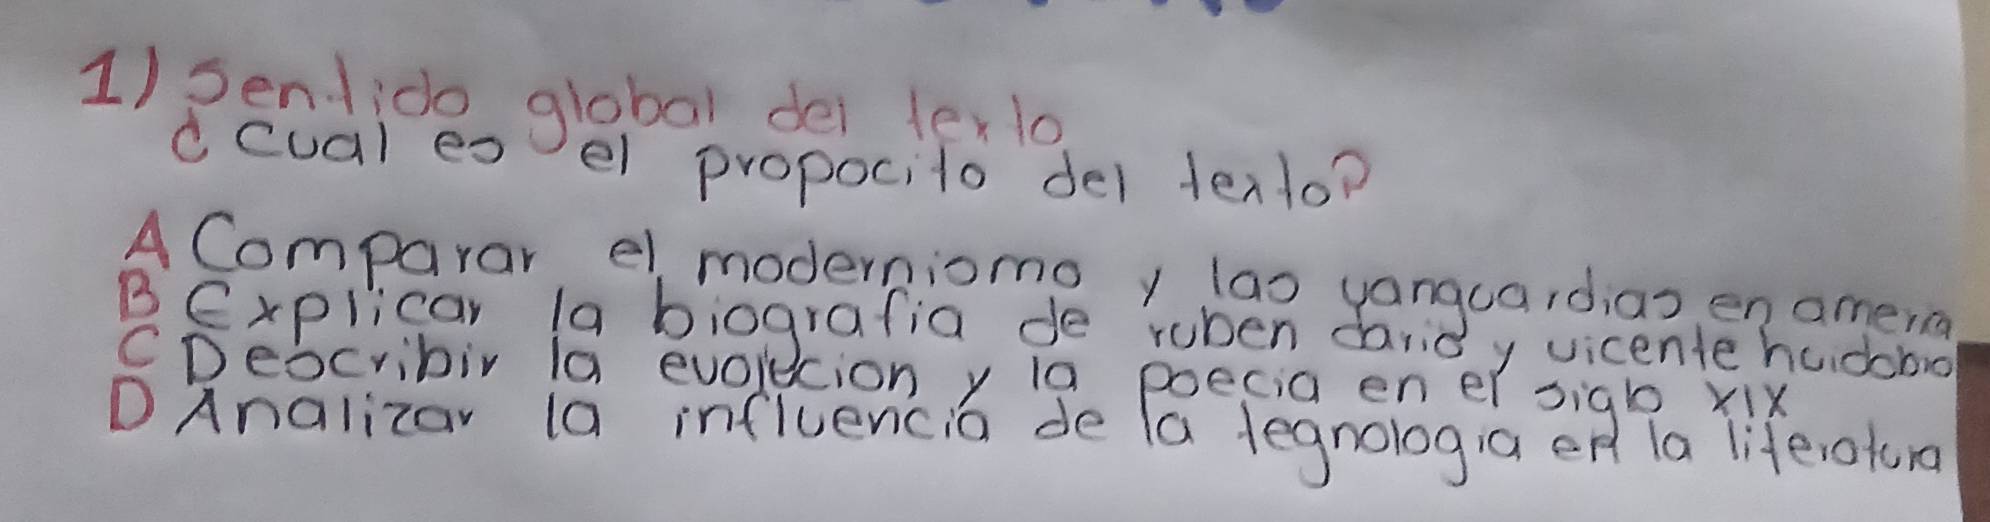 1) Sentido global del texto
¿ Cual es el propocito del texto?
A Comparar el modernismo y las vanguardias en ameria
B Explicar la biografia de ruben dario y vicente huidobro
C Describir la evolucion y la poecia en el siglo XIX
D Analizar la influencia de la tegnologia en la literatura